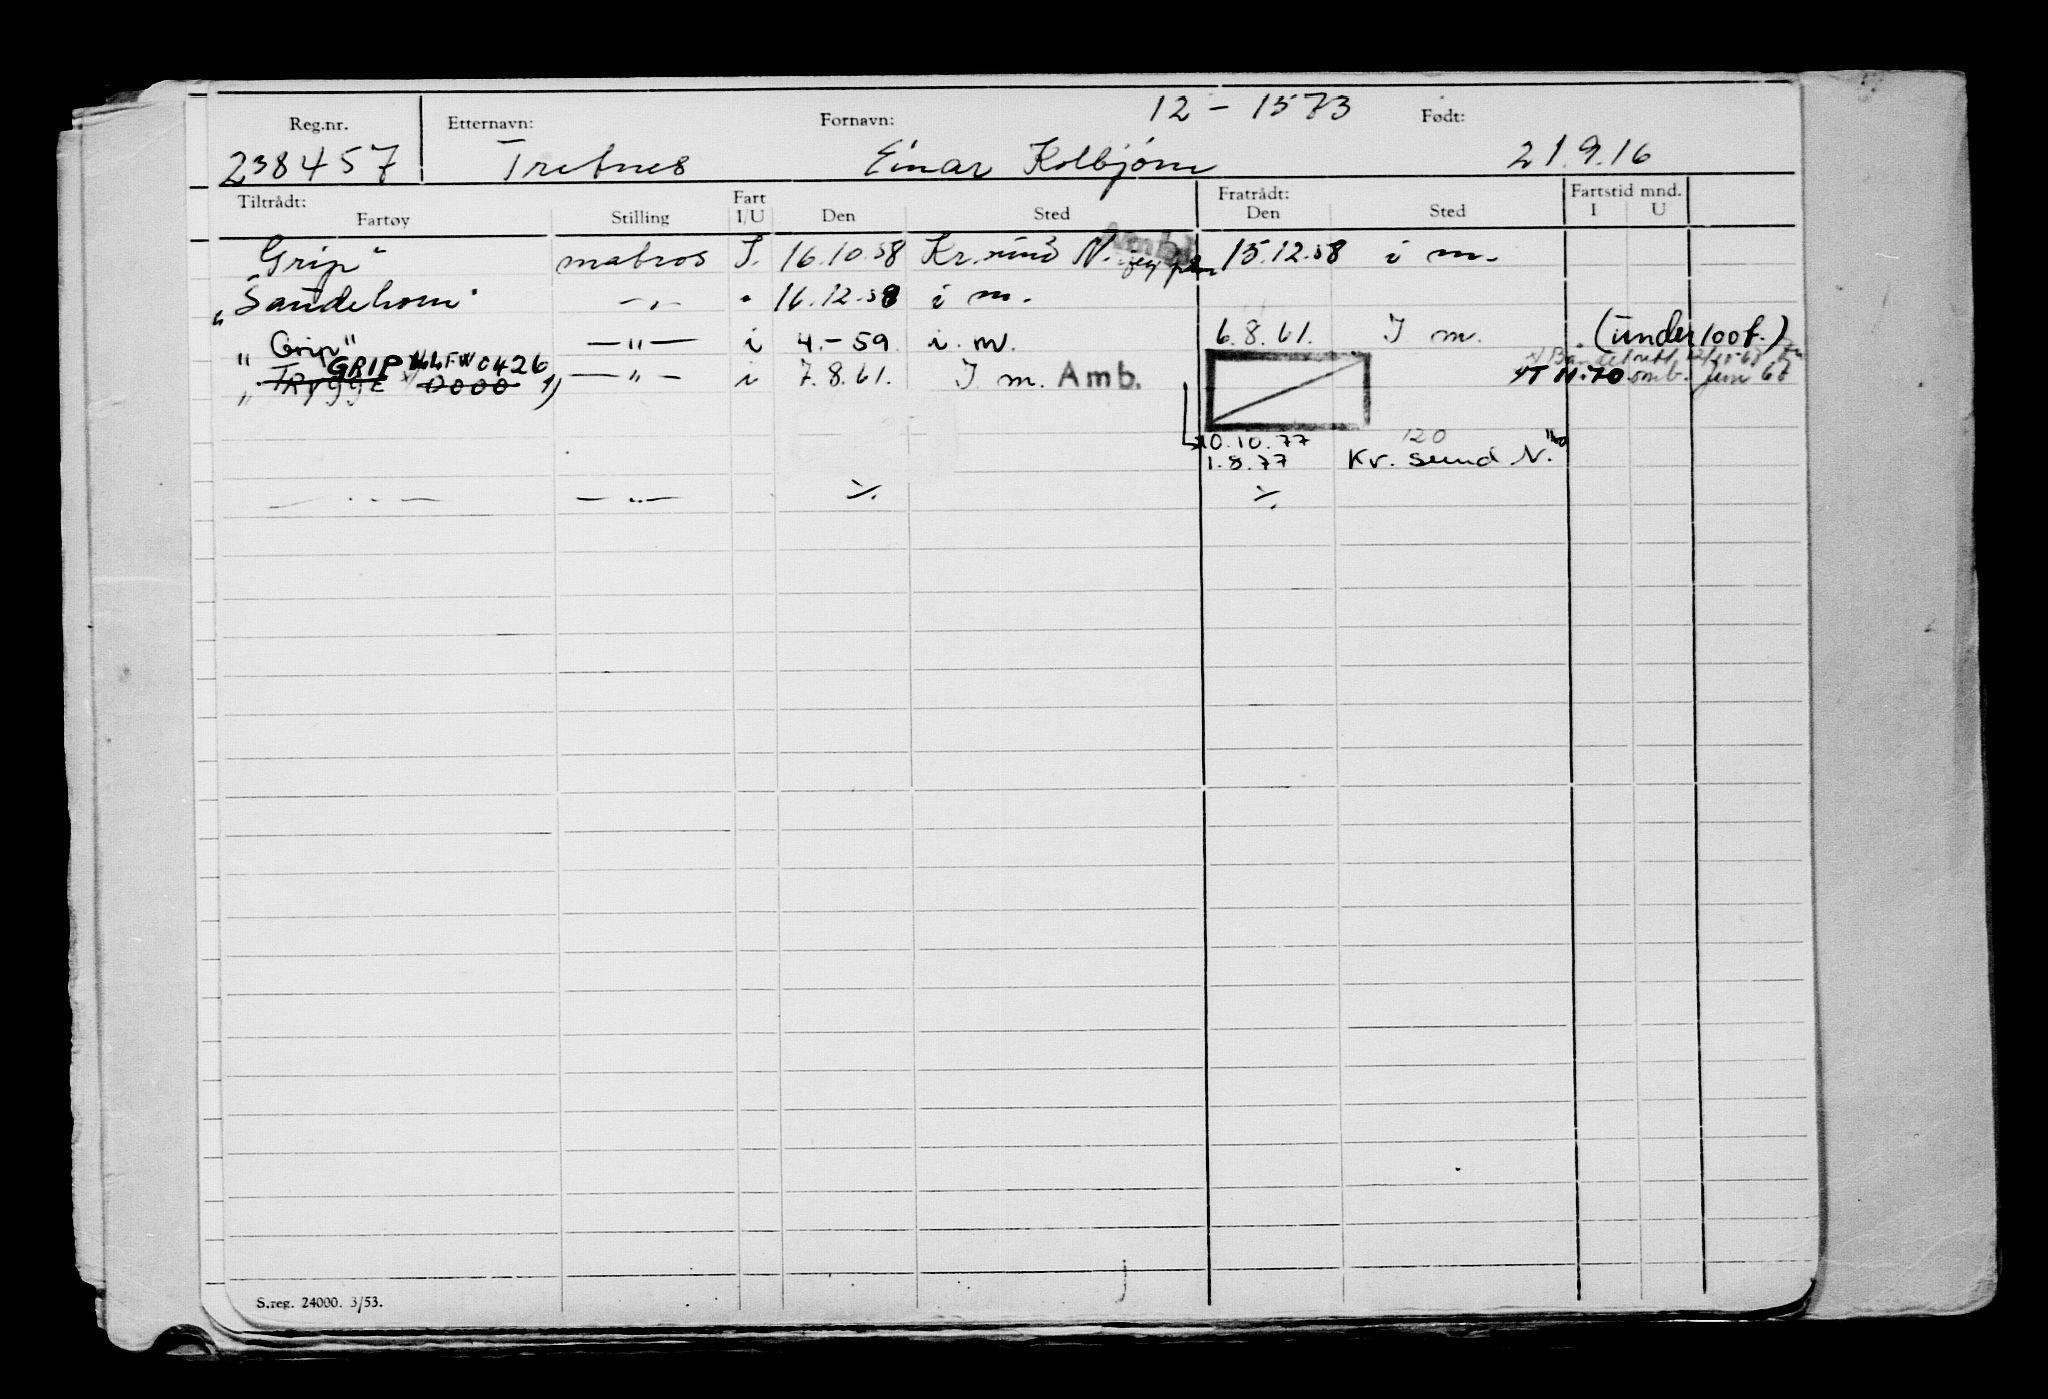 12 - 1573
Reg.nr. Etternavn: Fornavn: Født:
238457 Tretnes Einar Kolbjørn 21.9.16
Tiltrådt: Fart Fratrådt: Fartstid mnd.
Fartøy Stilling I/U Den Sted Den Sted I U
"Grip" matros I. 16.10.58 Kr.sund N. 15.12.58 i m.
"Sandehorn" -"- " 16.12.58 i m.
"Grip" -"- i 4.-59 i. m. 6.8.61. I m. (under 100 t.)
GRIP LLFW 0426
"TRYGGE 0000 1) -"- i 7.8.61. I m. Amb. YT 11.70 omb. juni 68
10.10.77 120
1.8.77 Kr. sund N.
- " - -"- ./. ./.
S.reg. 24000. 3/53.